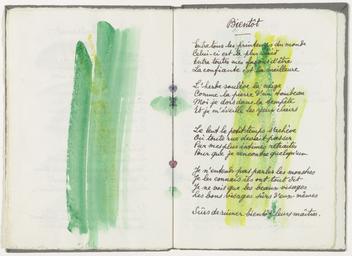 Bientôt
Entre tous les printemps du monde
Celui-ci est le plus laid
Entre toutes mes façons d'être
La confiante est la meilleure
L'herbe soulève la neige
Comme la pierre d'un tombeau
Moi je dors dans la tempête
Et je m'éveille les yeux clairs
Le lent le petit temps s'achève
Où toute rue devait passer
Par mes plus intimes retraites
Pour que je rencontre quelqu'un
Je n'entends pas parler les monstres
Je les connais ils ont tout dit
Je ne vois que les beaux visages
Les bons visages sûrs d'eux-mêmes
Sûrs de ruiner bientôt leurs maîtres.